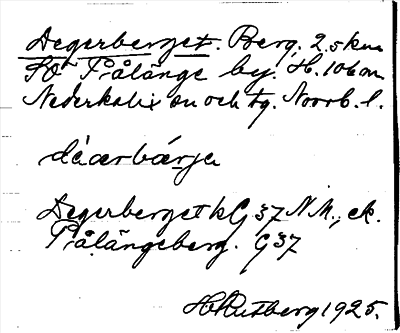 Degerberget. Berg. 2.5 km
SO Pålänge by. H. 106 m.
Nederkalix sn och tg. Norrb. l.
dèˈærbǽrjə
Degerberget k G 37 NM., ek.
Pålängeberg. G 37
H Rutberg 1925.